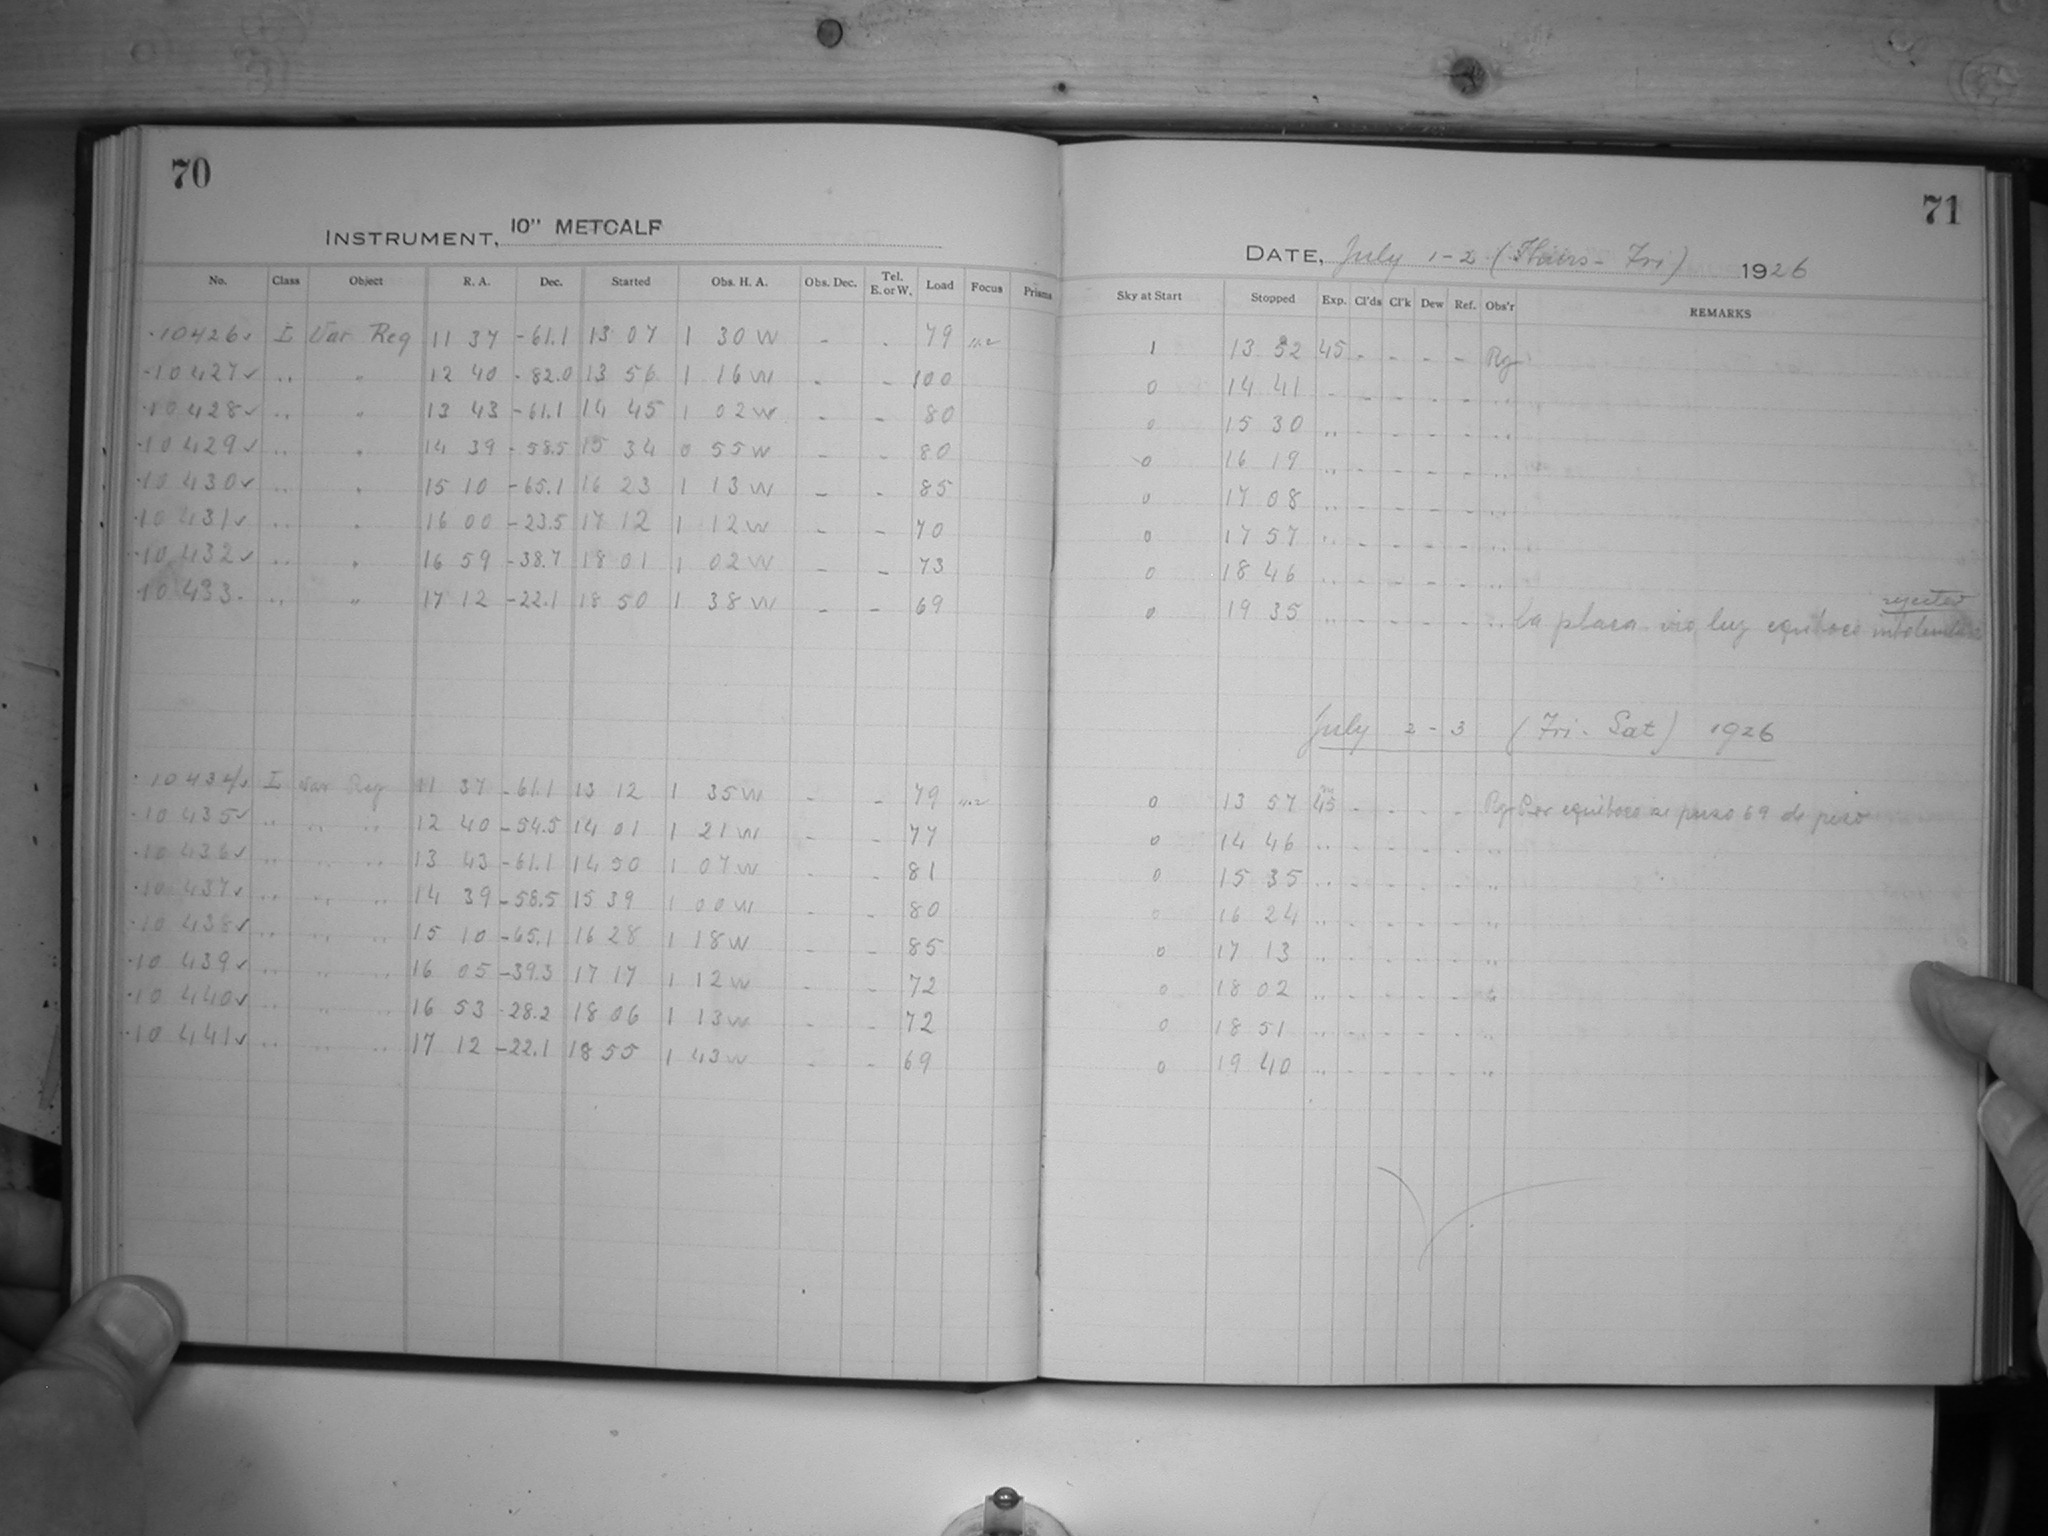 70
INSTRUMENT, 10" METCALF
No. Class Object R. A. Dec. Started Obs. H. A. Obs. Dec. Tel. E. or W. Load Focus Prisms
10426 I Var Reg 11 37 -61.1 13 07 1 30 W - - 79
10427 " " 12 40 -82.0 13 56 1 16 W - - 100
10428 " " 13 43 -61.1 14 45 1 02 W - - 80
10429 " " 14 39 -58.5 15 34 0 55 W - - 80
10430 " " 15 10 -65.1 16 23 1 13 W - - 85
10431 " " 16 00 -23.5 17 12 1 12 W - - 70
10432 " " 16 59 -38.7 18 01 1 02 W - - 73
10433 " " 17 12 -22.1 18 50 1 38 W - - 69
10434 I Var Reg 11 37 -61.1 13 12 1 35 W - - 79
10435 " " " 12 40 -54.5 14 01 1 21 W - - 77
10436 " " " 13 43 -61.1 14 50 1 07 W - - 81
10437 " " " 14 39 -58.5 15 39 1 00 W - - 80
10438 " " " 15 10 -65.1 16 28 1 18 W - - 85
10439 " " " 16 05 -39.3 17 17 1 12 W - - 72
10440 " " " 16 53 -28.2 18 06 1 13 W - - 72
10441 " " " 17 12 -22.1 18 55 1 43 W - - 69
71
DATE, July 1-2 (Thurs- Fri) 1926
Sky at Start Stopped Exp. Cl'ds Cl'k Dew Ref. Obs'r REMARKS
1 13 52 45 - - - - Rg
0 14 41 - - - - - "
0 15 30 " - - - - "
0 16 19 " - - - - "
0 17 08 " - - - - "
0 17 57 " - - - - "
0 18 46 " - - - - "
rejected
0 19 35 " - - - - " La placa vio luz equiboco
July 2-3 (Fri. Sat) 1926
0 13 57 45 - - - - Rg Por equiboco se puso 69 de peso
0 14 46 " - - - - "
0 15 35 " - - - - "
0 16 24 " - - - - "
0 17 13 " - - - - "
0 18 02 " - - - - "
0 18 51 " - - - - "
0 19 40 " - - - - "